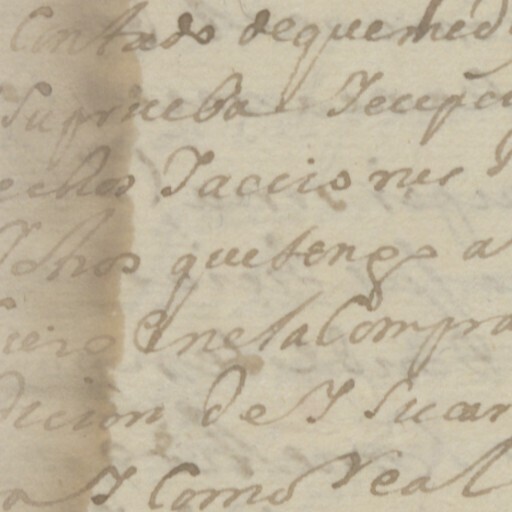 Contado de que me d
Su prueba Y ecepci
echos Y acciones Y
dhos que tengo a
quiero en el la Compra
dicion de Y Su car
a Y Como real